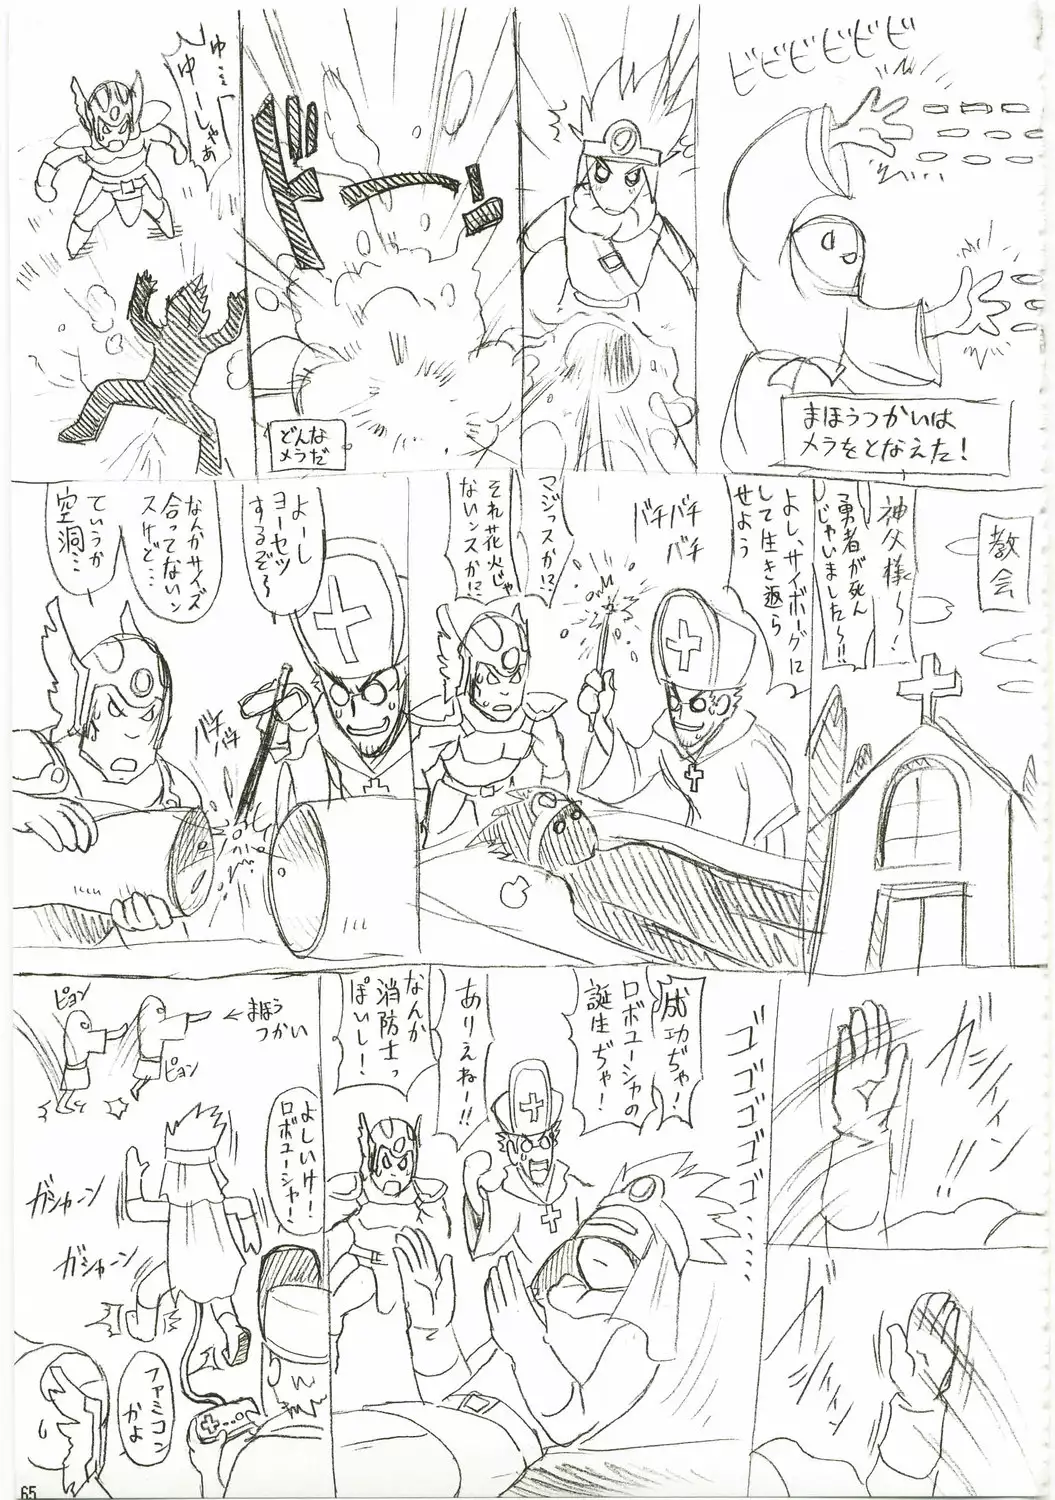 ビビビビビビ
まほうつかいは
メラをとなえた!
どんな
メラだ
ドーン
ゆ…
ゆーしゃあ
教会
神父様〜!
勇者が死ん
じゃいました〜!!
よし、サイボーグに
して生き返ら
せよう
バチバチ
バチ
マジっスか!?
それ花火じゃ
ないンスか!?
よーし
ヨーセツ
するぞ〜
バチ
バチ
なんかサイズ
合ってないン
スけど…
ていうか
空洞…
ガシィィン
ゴゴゴゴゴゴ……
成功ぢゃ!
ロボユーシャの
誕生ぢゃ!
ありえねー!!
なんか
消防士っ
ぽいし!
ピョン
ピョン
←まほう
つかい
よしいけ!
ロボユーシャー!
ガシャーン
ガシャーン
ファミコン
かよ
65